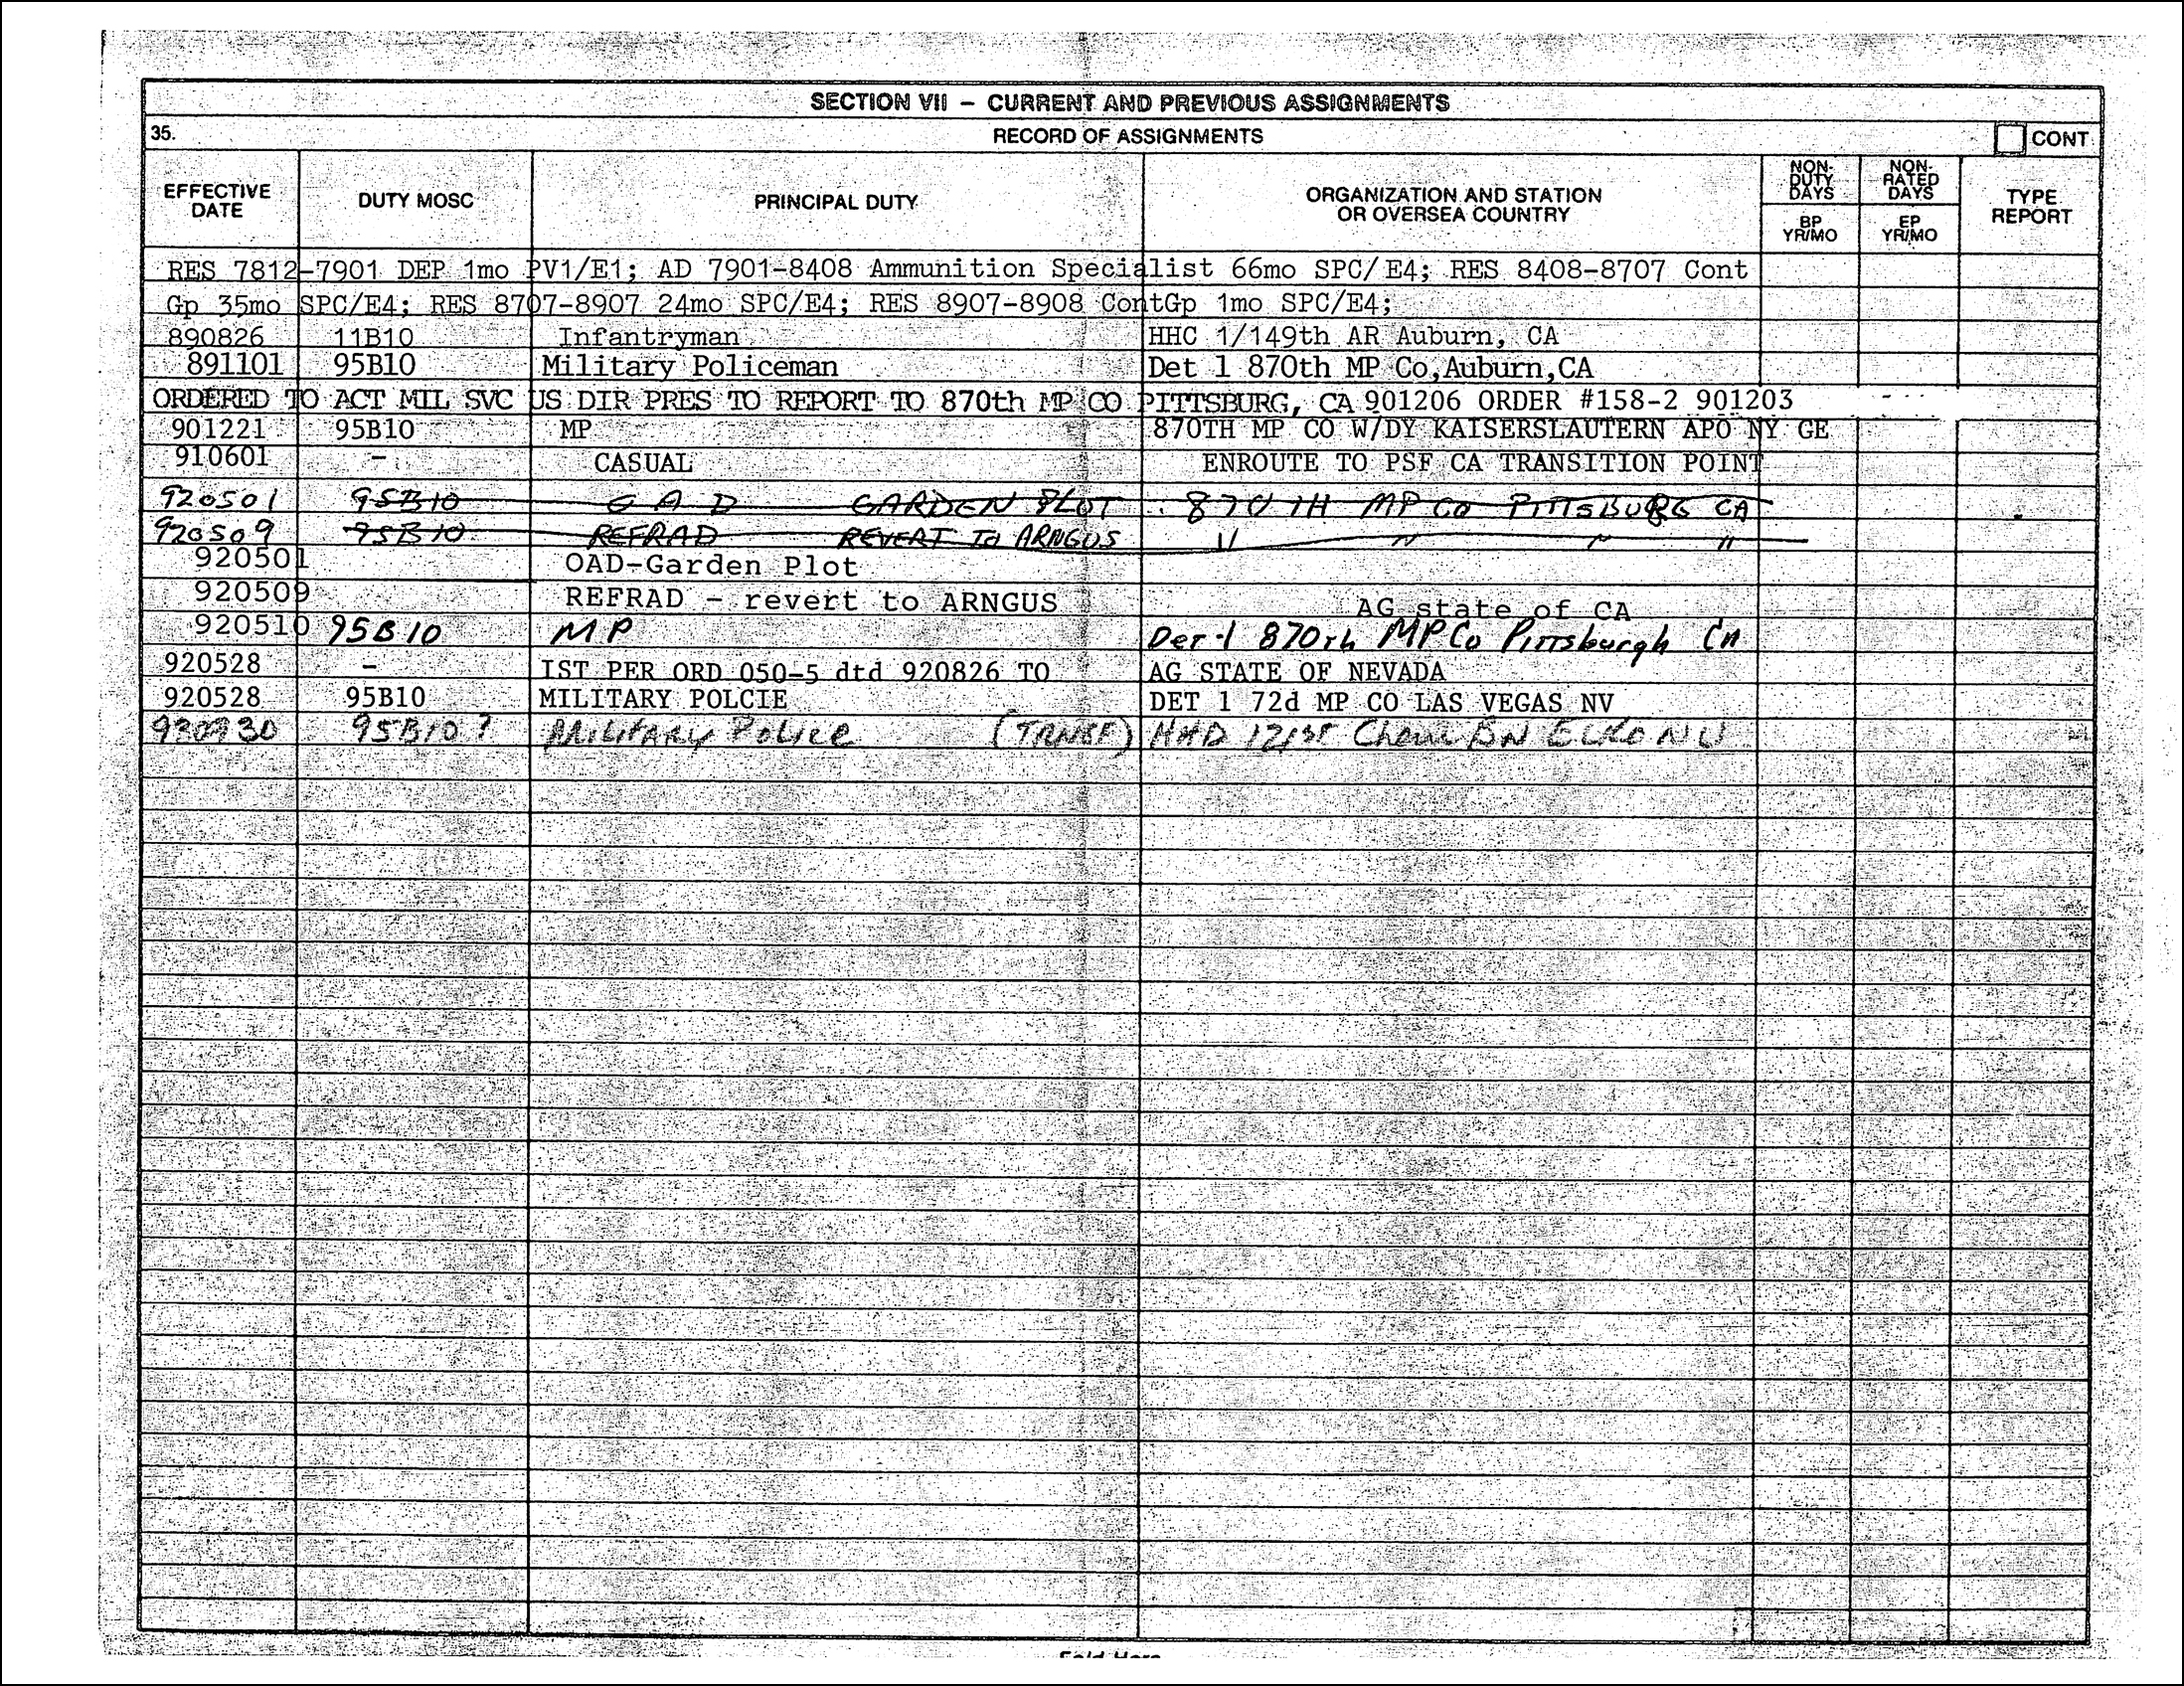 SECTION VII – CURRENT AND PREVIOUS ASSIGNMENTS
35. RECORD OF ASSIGNMENTS CONT
EFFECTIVE DATE DUTY MOSC PRINCIPAL DUTY ORGANIZATION AND STATION OR OVERSEA COUNTRY NON-DUTY DAYS NON-RATED DAYS TYPE REPORT
BP YR/MO EP YR/MO
RES 7812-7901 DEP 1mo PV1/E1; AD 7901-8408 Ammunition Specialist 66mo SPC/E4; RES 8408-8707 Cont
Gp 35mo SPC/E4; RES 8707-8907 24mo SPC/E4; RES 8907-8908 ContGp 1mo SPC/E4;
890826 11B10 Infantryman HHC 1/149th AR Auburn, CA
891101 95B10 Military Policeman Det 1 870th MP Co,Auburn,CA
ORDERED TO ACT MIL SVC US DIR PRES TO REPORT TO 870th MP CO PITTSBURG, CA 901206 ORDER #158-2 901203
901221 95B10 MP 870TH MP CO W/DY KAISERSLAUTERN APO NY GE
910601 – CASUAL ENROUTE TO PSF CA TRANSITION POINT
920501 95B10 O A D GARDEN PLOT 870TH MP Co PITTSBURG CA
920509 95B10 REFRAD REVERT To ARNGUS " " " "
920501 OAD-Garden Plot
920509 REFRAD - revert to ARNGUS AG state of CA
920510 95B10 MP Det-1 870th MP Co Pittsburgh CA
920528 – IST PER ORD 050-5 dtd 920826 TO AG STATE OF NEVADA
920528 95B10 MILITARY POLCIE DET 1 72d MP CO LAS VEGAS NV
95B10 ? Military Police (TRNSF) HHD 121st Chem BN ELKO NV